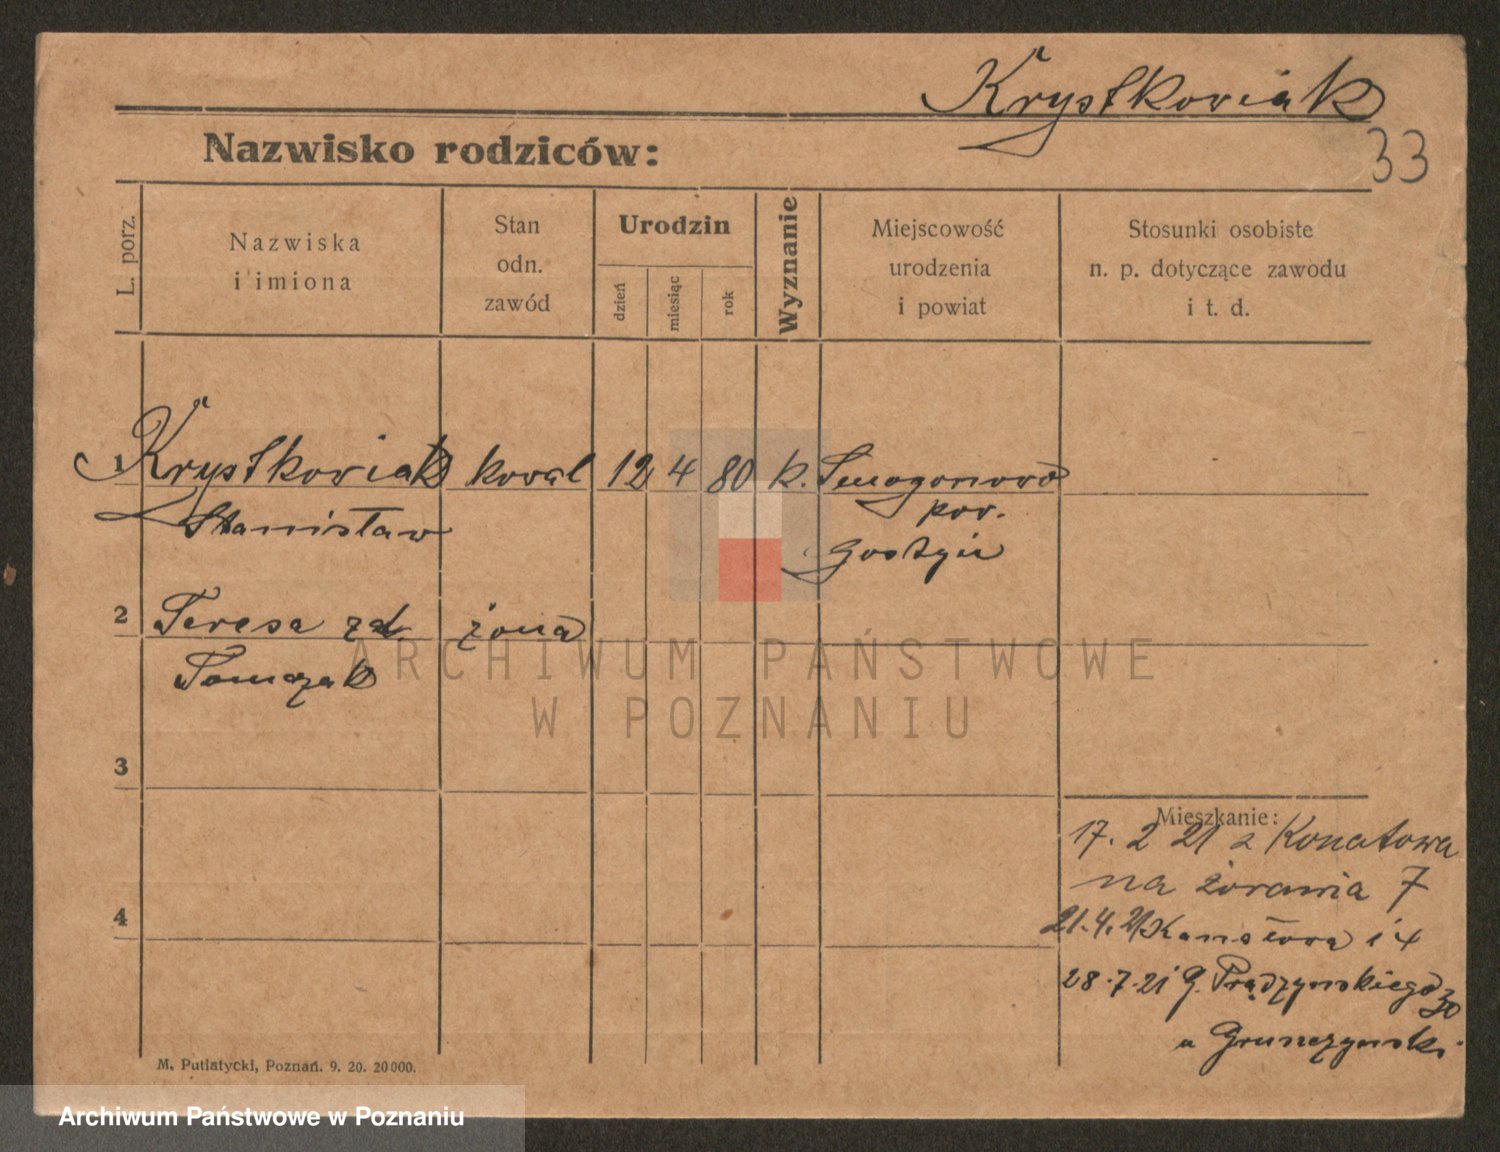 Krystkowiak
33
Nazwisko rodziców:
L. porz.
Nazwiska
i imiona
Stan
odn.
zawód
Urodzin
dzień
miesiąc
rok
Wyznanie
Miejscowość
urodzenia
i powiat
Stosunki osobiste
n. p. dotyczące zawodu
i t. d.
1 Krystkowiak kowal 12 4 80 k. Smogorzewo
Stanisław pow.
Gostyń
2 Teresa zd żona
Tomczak
ARCHIWUM PAŃSTWOWE
W POZNANIU
3
Mieszkanie:
17. 2 21 z Konatowa
na żórawia 7
4
21.4.21 14
28.7.21 G. Prądzyńskiego 30
u
M. Putiatycki, Poznań. 9. 20. 20000.
Archiwum Państwowe w Poznaniu